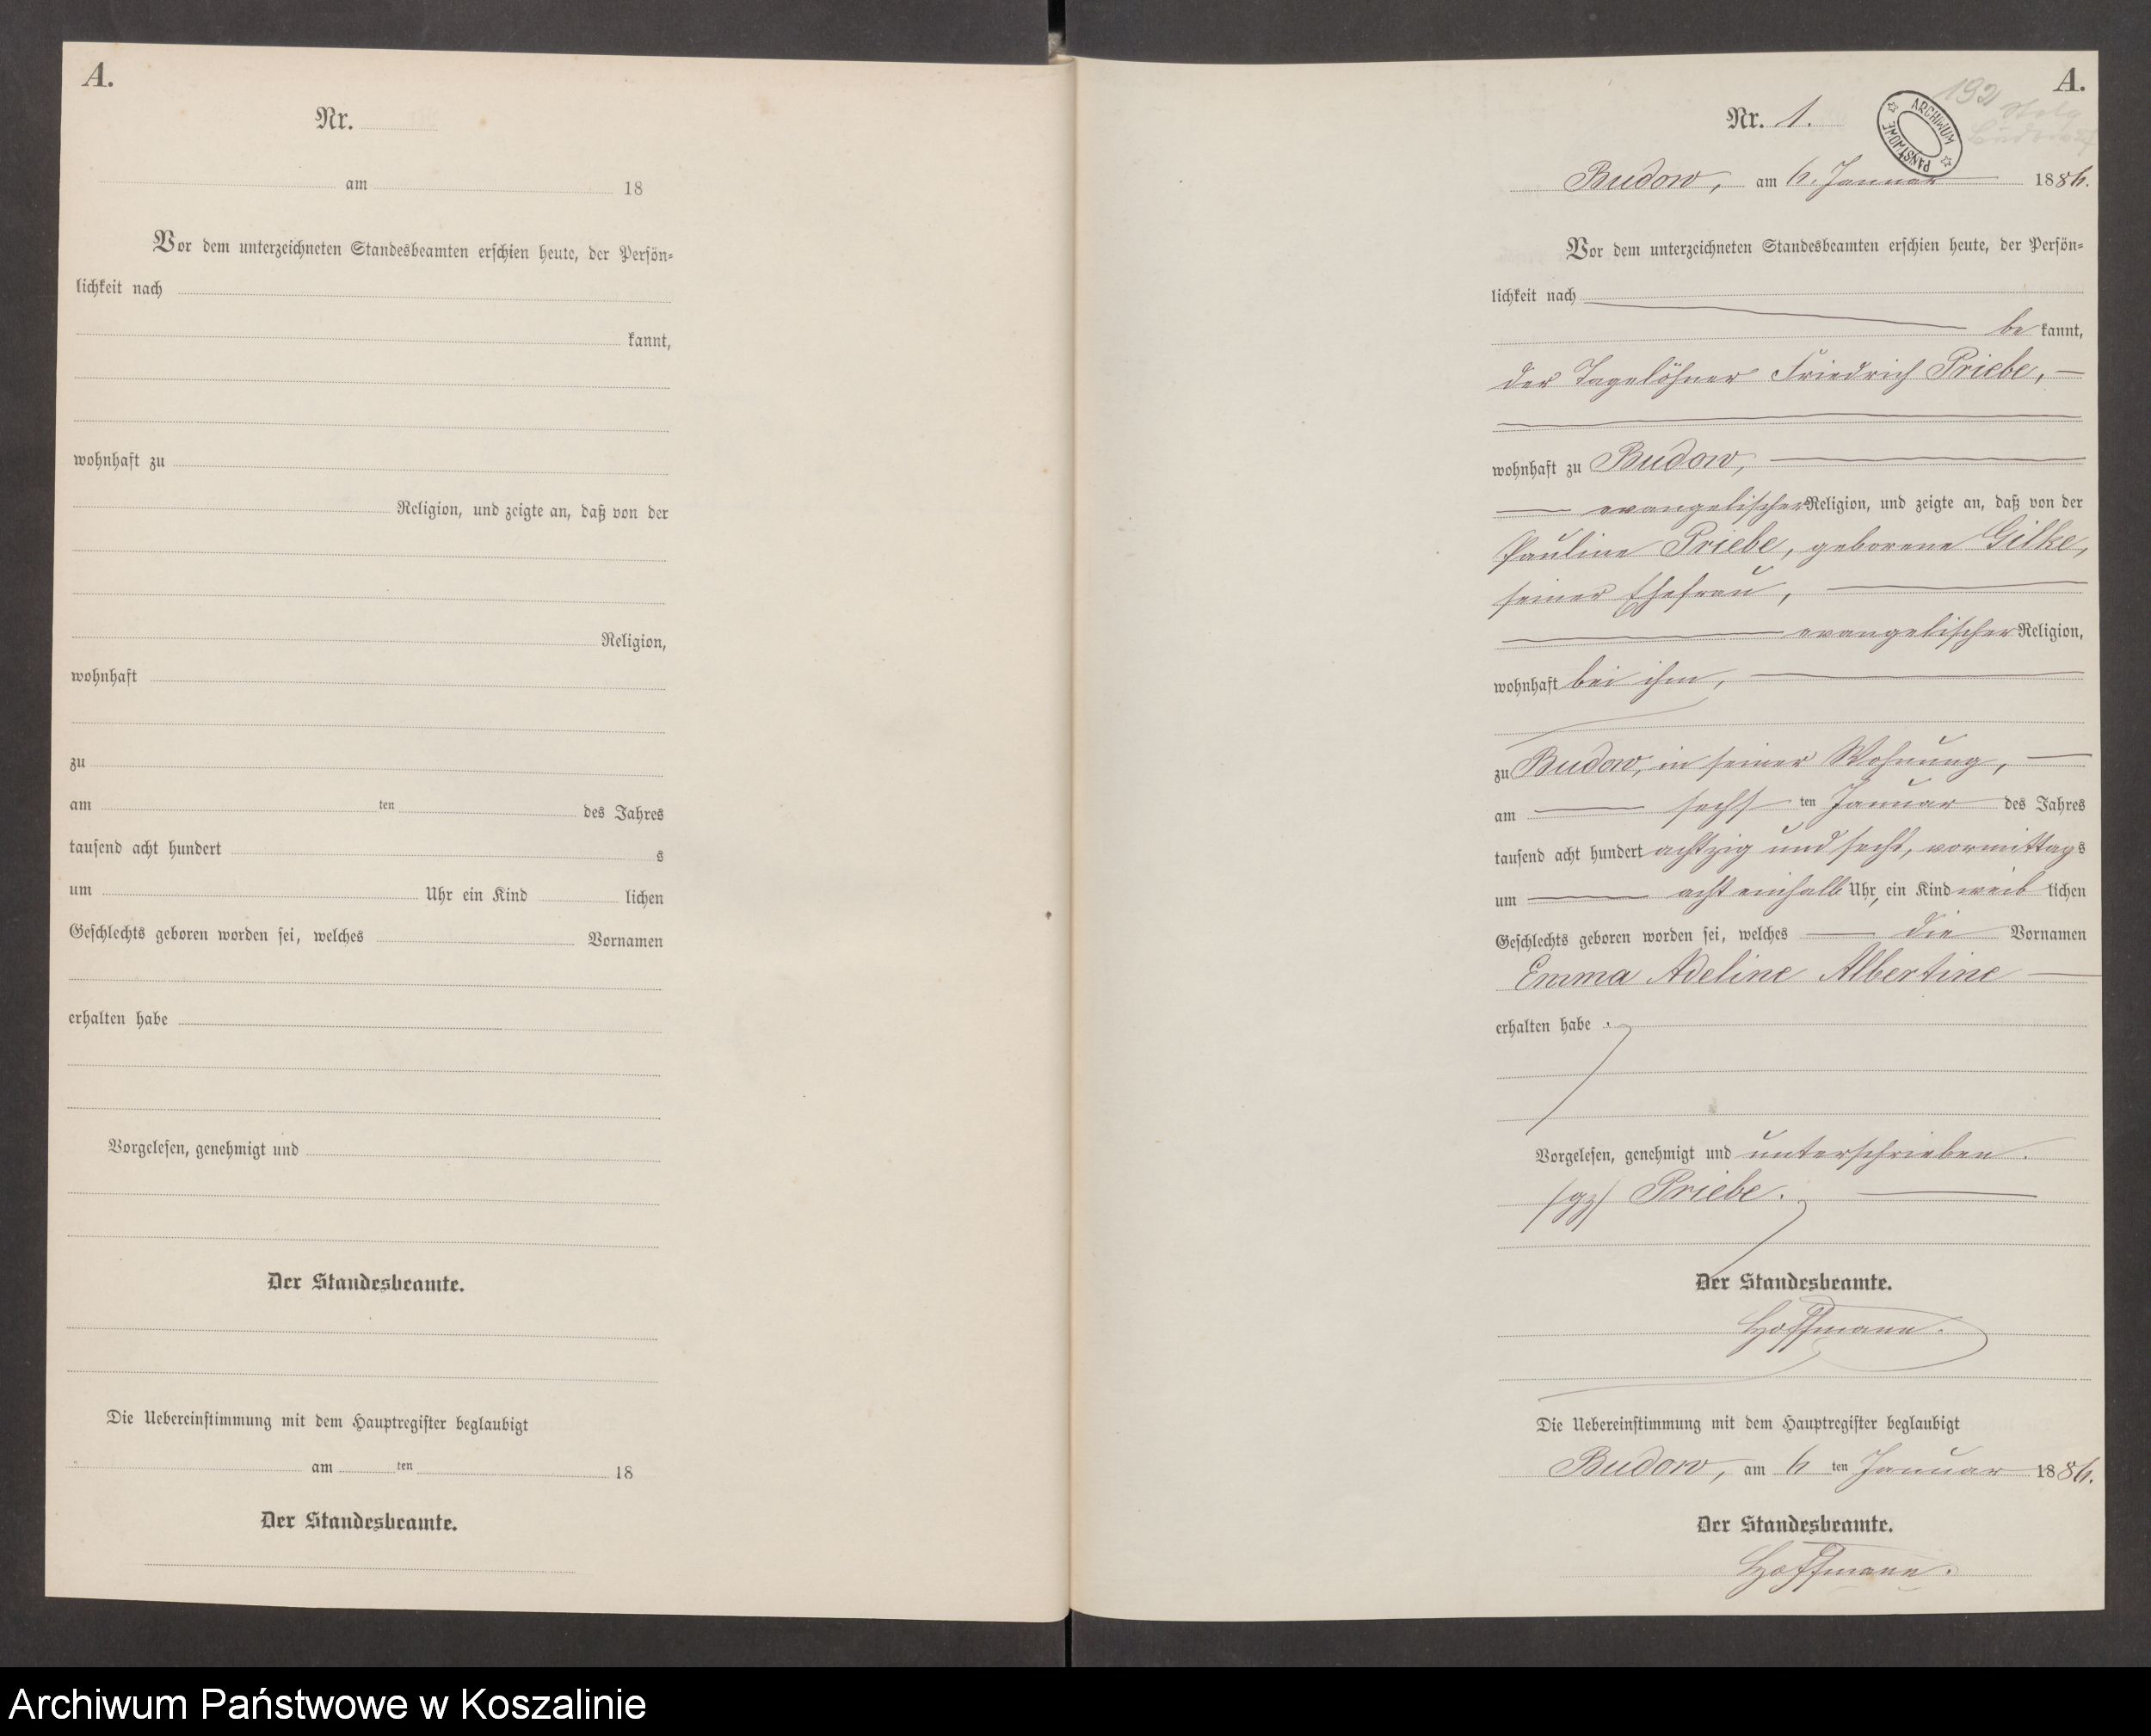 A.
Nr.
am 18
Vor dem unterzeichneten Standesbeamten erschien heute, der Persön=
lichkeit nach
kannt,
wohnhaft zu
Religion, und zeigte an, daß von der
Religion,
wohnhaft
zu
am ten des Jahres
tausend acht hundert s
um Uhr ein Kind lichen
Geschlechts geboren worden sei, welches Vornamen
erhalten habe
Vorgelesen, genehmigt und
Der Standesbeamte.
Die Uebereinstimmung mit dem Hauptregister beglaubigt
am ten 18
Der Standesbeamte.
A.
192
Nr. 1.
ARCHIWUM PAŃSTWOWE
Budow, am 6. Januar 1886.
Vor dem unterzeichneten Standesbeamten erschien heute, der Persön=
lichkeit nach
be kannt,
der Tagelöhner Friedrich Priebe,
wohnhaft zu Budow,
evangelischer Religion, und zeigte an, daß von der
Pauline Priebe, geborene Gilke,
seiner Ehefrau,
evangelischer Religion,
wohnhaft bei ihm,
zu Budow, in seiner Wohnung,
am sechs ten Januar des Jahres
tausend acht hundert achtzig und sechs, vormittags
um acht einhalb Uhr, ein Kind weib lichen
Geschlechts geboren worden sei, welches die Vornamen
Emma Adeline Albertine
erhalten habe.
Vorgelesen, genehmigt und unterschrieben.
/gz/ Priebe.
Der Standesbeamte.
Hoffmann.
Die Uebereinstimmung mit dem Hauptregister beglaubigt
Budow, am 6 ten Januar 1886.
Der Standesbeamte.
Hoffmann.
Archiwum Państwowe w Koszalinie